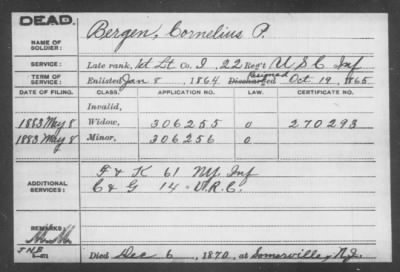 DEAD.
NAME OF SOLDIER: Bergen, Cornelius P.
SERVICE: Late rank, 1st Lt Co. I, 22 Reg't U S C Inf
TERM OF SERVICE: Enlisted Jan 8, 1864 Discharged Resigned Oct. 19, 1865
DATE OF FILING. CLASS. APPLICATION NO. LAW. CERTIFICATE NO.
Invalid,
1883 May 8 Widow, 306255 0 270293
1883 May 8 Minor, 306256 0
ADDITIONAL SERVICES: F & K 61 NY. Inf
C & G 14 = V.R.C.
REMARKS:
Died Dec 6, 1870, at Somerville, N.J.